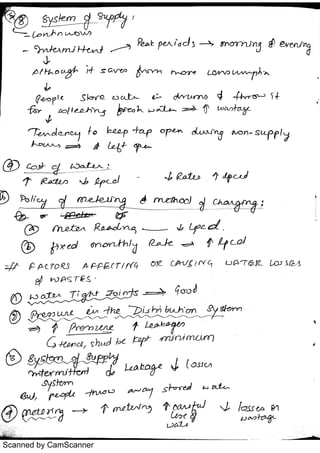 ⑧ System of Supply :
- Continuous
- Intermittent → Peak periods → morning & evening
↓
Although it saves from more consumption
↓
People store water in drums & throw it
for collecting fresh water ⇒ ↑ wastage
↓
Tendency to keep tap open during non-supply
hours ⇒ left open
⑨ Cost of Water :
↑ Rates ↓ lpcd ↓ Rates ↑ lpcd
⑩ Policy of metering & method of Charging :
ⓐ meter Reading ↓ Lpcd. OR
ⓑ fixed monthly Rate ⇒ ↑ lpcd
=// FACTORS AFFECTING OR CAUSING WATER LOSSES
of WASTES.
① Water Tight Joints ⇒ Good
② Pressure in the Distribution System
⇒ ↑ Pressure ↑ Leakages
↳ Hence, shud be kept minimum
③ System of Supply
Intermittent Leakage ↓ losses
System
But, people throw away stored water
④ metering → ↑ metering ↑ careful ↓ losses or
use of wastage
water
Scanned by CamScanner